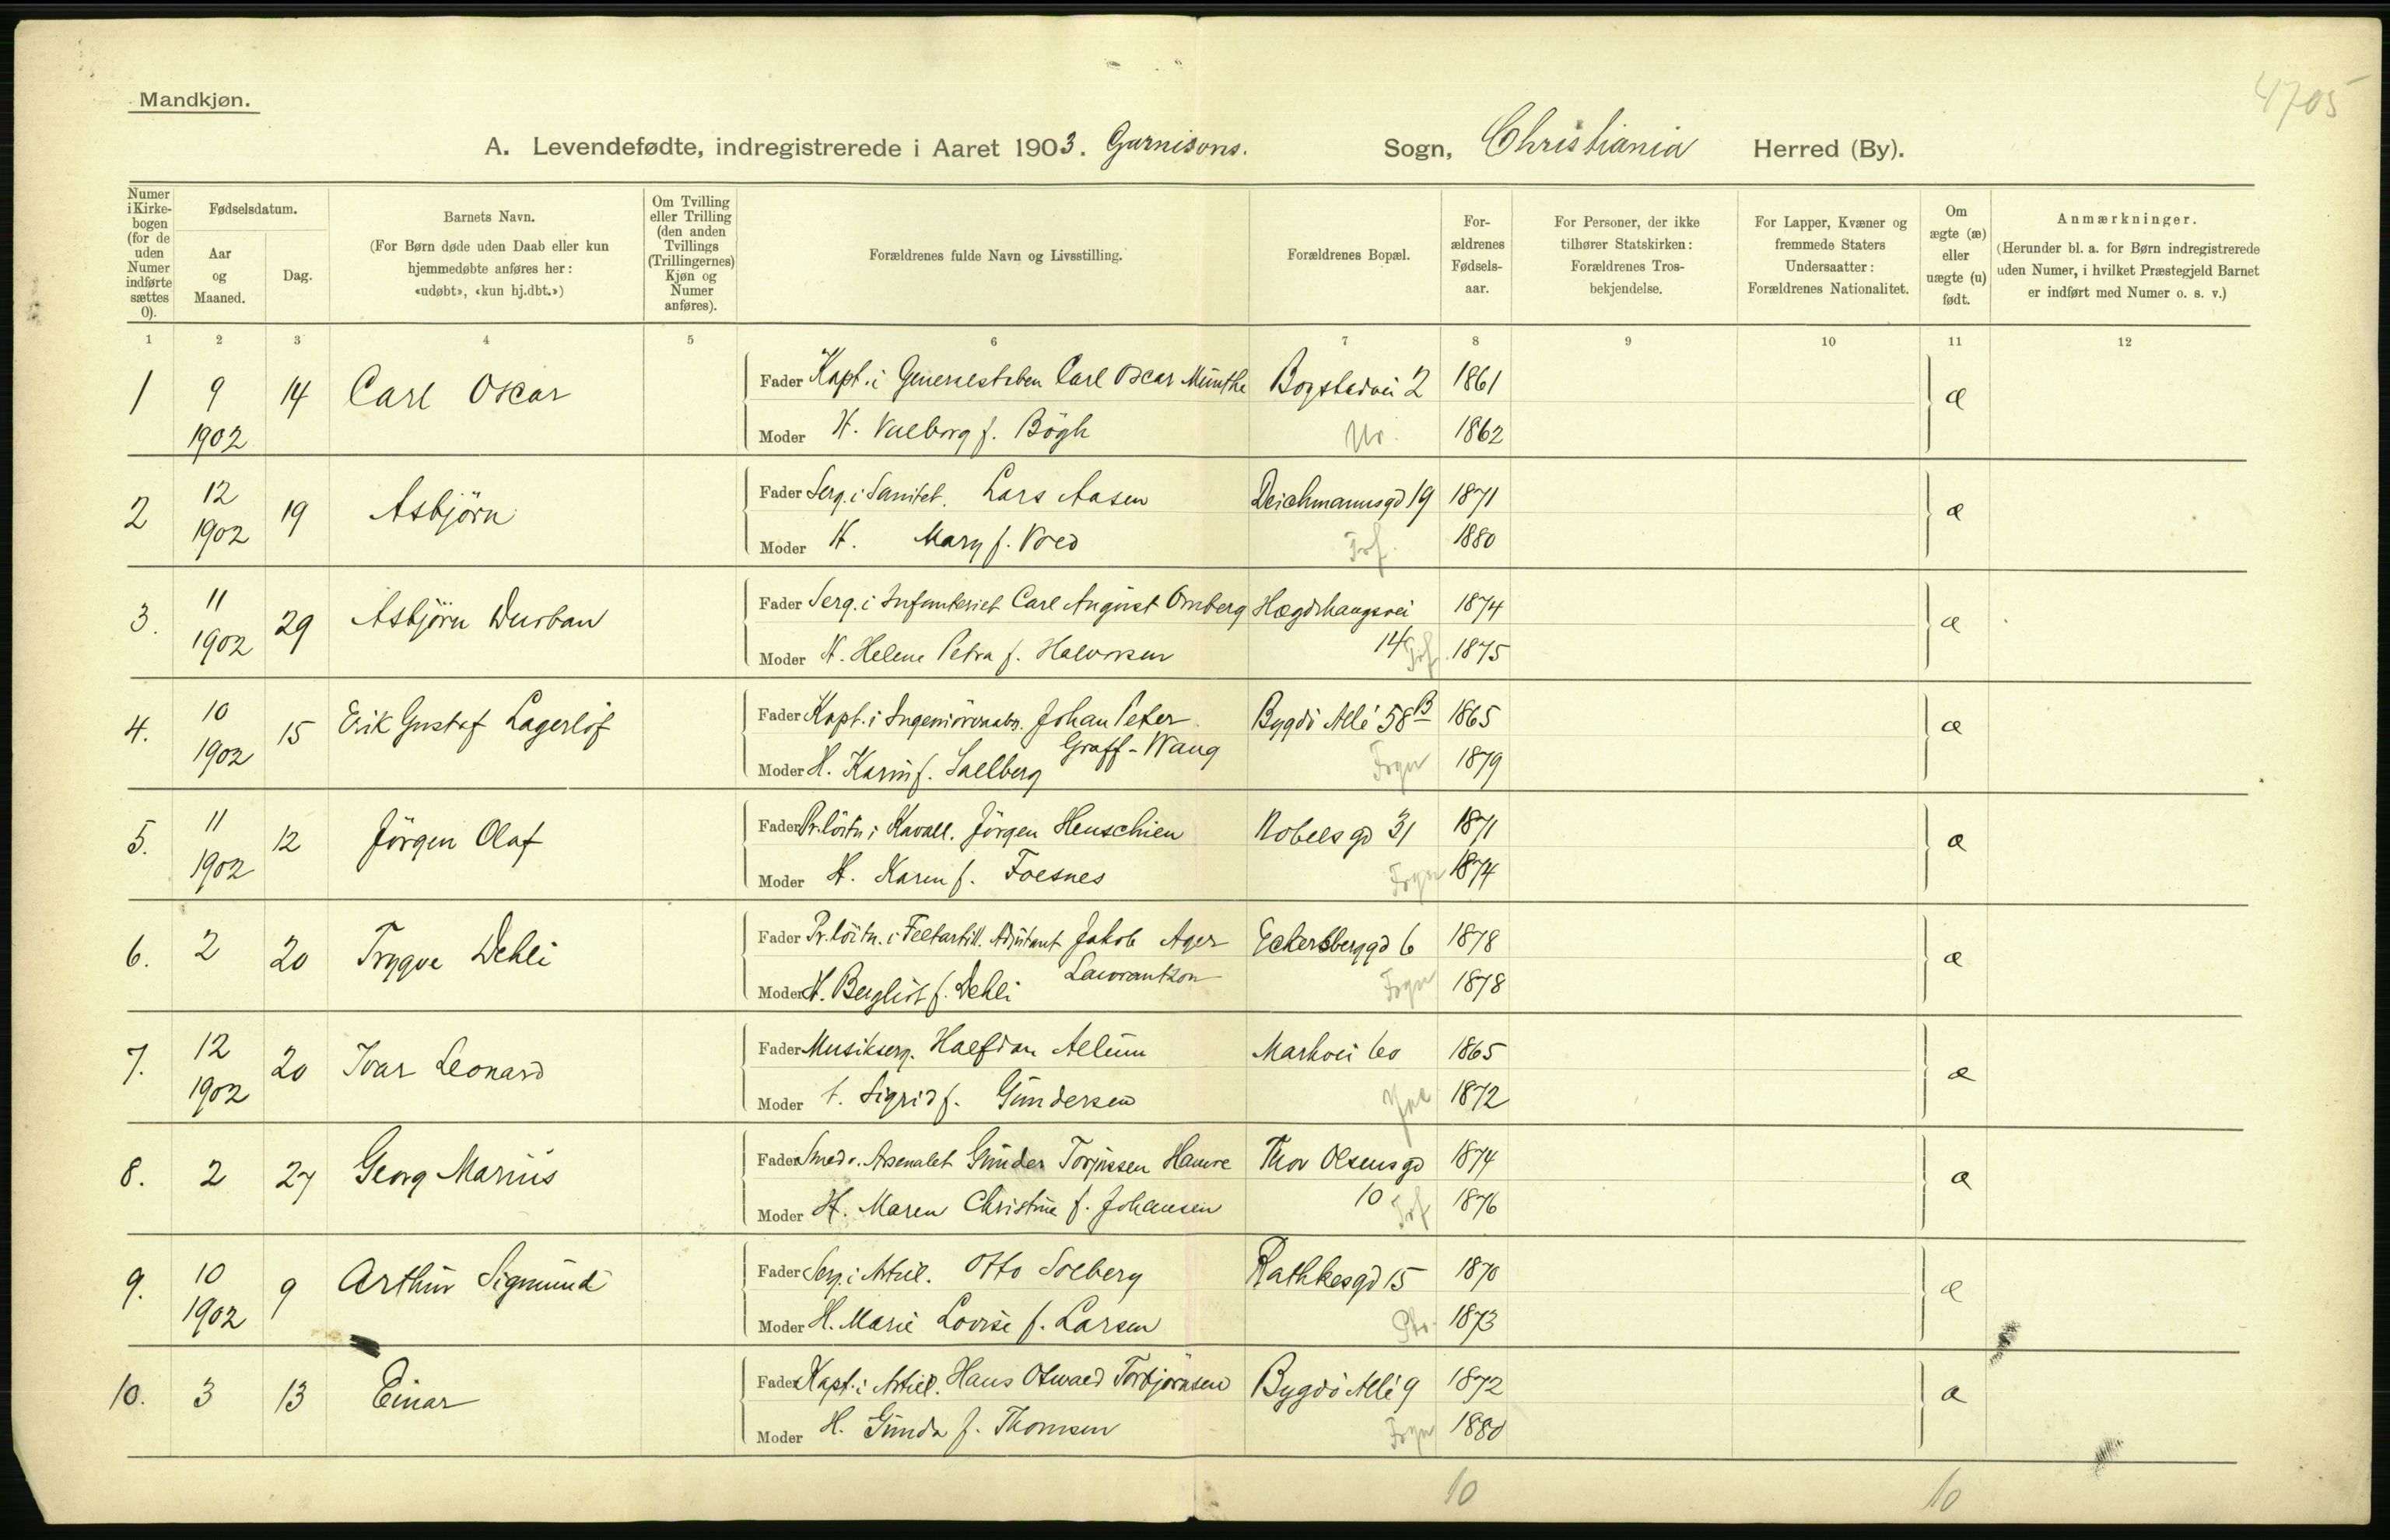 4705
Mandkjøn.
A. Levendefødte, indregistrerede i Aaret 1903. Garnisons. Sogn, Christiania Herred (By).
Numer i Kirkebogen (for de uden Numer indførte sættes 0).
Fødselsdatum.
Aar og Maaned.
Dag.
Barnets Navn.
(For Børn døde uden Daab eller kun hjemmedøbte anføres her: «udøbt», «kun hj.dbt.»)
Om Tvilling eller Trilling (den anden Tvillings (Trillingernes) Kjøn og Numer anføres).
Forældrenes fulde Navn og Livsstilling.
Forældrenes Bopæl.
Forældrenes Fødselsaar.
For Personer, der ikke tilhører Statskirken: Forældrenes Trosbekjendelse.
For Lapper, Kvæner og fremmede Staters Undersaatter: Forældrenes Nationalitet.
Om ægte (æ) eller uægte (u) født.
Anmærkninger.
(Herunder bl. a. for Børn indregistrerede uden Numer, i hvilket Præstegjeld Barnet er indført med Numer o. s. v.)
1 2 3 4 5 6 7 8 9 10 11 12
1 9 14 Carl Oscar Fader Kapt. i Generalstaben Carl Oscar Munthe Bogstadvei 2 1861 æ
1902 Moder H. Valborg f. Bögh Ur. 1862
2 12 19 Asbjörn Fader Serg. i Sanitet. Lars Aasen Deichmannsgd 19 1871 æ
1902 Moder H. Mary f. Vold Trf. 1880
3. 11 29 Asbjörn Durban Fader Serg. i Infanteriet Carl August Omberg Hægdehaugsvei 1874 æ
1902 Moder H. Helene Petra f. Halvorsen 14 1875
4. 10 15 Erik Gustaf Lagerlöf Fader Kapt. i Ingeniörvaabn. Johan Peter Bygdö Allé 58 B 1865 æ
Graff-Wang
1902 Moder H. Karin f. Sallberg Frgn 1879
5. 11 12 Jörgen Olaf Fader Pr.löitn i Kavall. Jörgen Henschien Nobels gd 31 1871 æ
1902 Moder H. Karen f. Foesnes Frgn 1874
6. 2 20 Trygve Dehli Fader Pr.löitn. i Feltartill. Adjutant Jakob Ager Eckersberggd 6 1878 æ
Laurantzon
Moder H. Bergliot f. Dehli Frgn 1878
7. 12 20 Ivar Leonard Fader Musikserg. Halfdan Allum Markvei 60 1865 æ
1902 Moder H. Sigrid f. Gundersen 1872
8. 2 27 Georg Marius Fader Smed v. Arsenalet Gunder Torjussen Hamre Thor Olsens gd 1874 æ
Moder H. Maren Christine f. Johansen 10 1876
9. 10 9 Arthur Sigmund Fader Serg. i Artil. Otto Solberg Rathkesgd 15 1870 æ
1902 Moder H. Marie Lovise f. Larsen 1873
10. 3 13 Einar Fader Kapt. i Artill. Hans Oswald Torbjörnsen Bygdö Allé 9 1872 æ
Moder H. Gunda f. Thomsen Frgn 1880
10 10